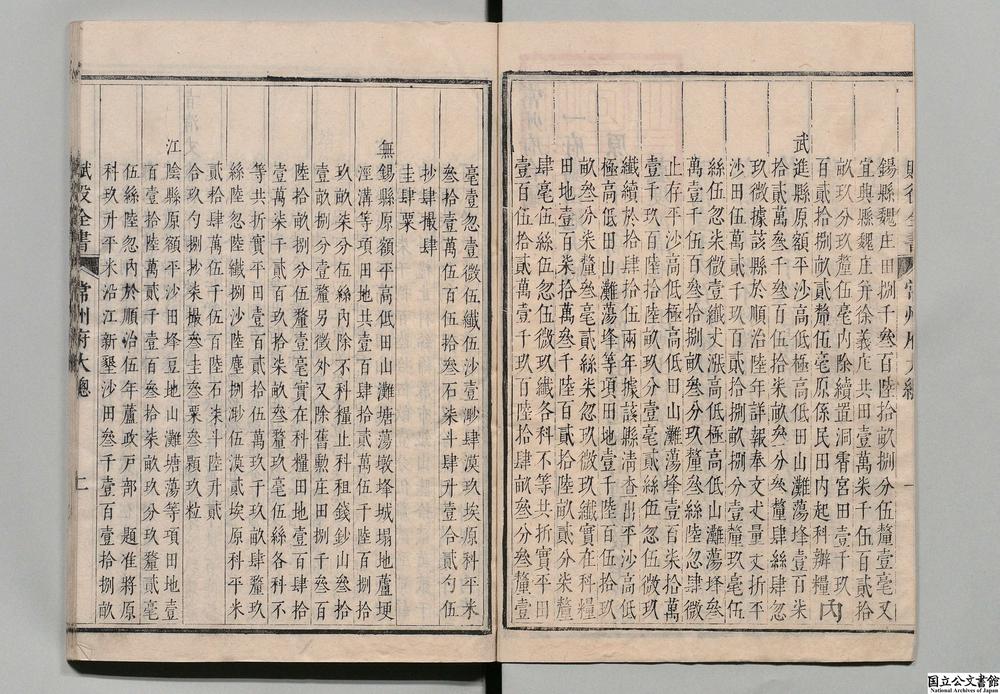 賦役全書 常州府大總 一
錫縣魏庄田捌千叁百陸拾畝捌分伍釐壹毫又
宜興縣魏庄并徐義庄共田壹萬柒千伍百貳拾
畝玖分玖釐伍毫內除續置洞霄宮田壹千玖
百貳拾捌畝貳釐伍毫原係民田內起科辦糧內
武進縣原額平沙高低極高低田山灘蕩埄壹百柒
拾貳萬叁千壹百玖拾柒畝叁分叁釐肆絲肆忽
玖微據該縣於順治陸年詳報奉文丈量丈折平
沙田伍萬貳千玖百貳拾捌畝捌分壹釐玖毫伍
絲伍忽柒微壹纖丈漲高低極高低山灘蕩埄叁
萬壹千伍百玖拾玖畝叁分玖釐叁絲陸忽肆微
止存平沙高低極高低田山灘蕩埄壹百柒拾萬
壹千捌百陸拾柒畝玖分壹毫貳絲伍忽伍微玖
纖續於拾肆拾伍兩年據該縣清查出平沙高低
極高低田山灘蕩埄等項田地壹千陸百伍拾玖
畝叁分柒釐叁毫貳絲柒忽玖微玖纖實在科糧
田地壹百柒拾萬叁千陸百貳拾陸畝貳分柒釐
肆毫伍絲伍忽伍微玖纖各科不等共折實平田
壹百伍拾貳萬壹千玖百陸拾肆畝叁分叁釐壹
毫壹忽壹微伍纖伍沙壹渺肆漠玖埃原科平米
叁拾壹萬伍百伍拾叁石柒斗肆升壹合貳勺伍
抄肆撮肆
圭肆粟
無錫縣原額平高低田山灘塘蕩墩埄城塌地蘆埂
淫溝等項田地共壹百肆拾貳萬伍千陸百捌拾
玖畝柒分伍絲內除不科糧止科租錢鈔山叁拾
壹畝捌分壹釐另徵外又除舊勳庄田捌千叁百
陸拾畝捌分伍釐壹毫實在科糧田地壹百肆拾
壹萬柒千貳百玖拾柒畝叁釐玖毫伍絲各科不
等共折實平田壹百貳拾伍萬玖千玖畝肆釐玖
絲陸忽陸纖捌沙陸塵捌渺伍漠貳埃原科平米
貳拾肆萬伍千伍百陸石柒斗陸升貳
合玖勺捌抄柒撮叁圭叁粟叁顆玖粒
江陰縣原額平沙田埄豆地山灘塘蕩等項田地壹
百壹拾陸萬貳千壹百叁拾柒畝玖分玖釐貳毫
伍絲陸忽內於順治伍年蘆政戶部 題准將原
科玖升平米沿江新墾沙田叁千壹百壹拾捌畝
賦役全書 常州府大總 上